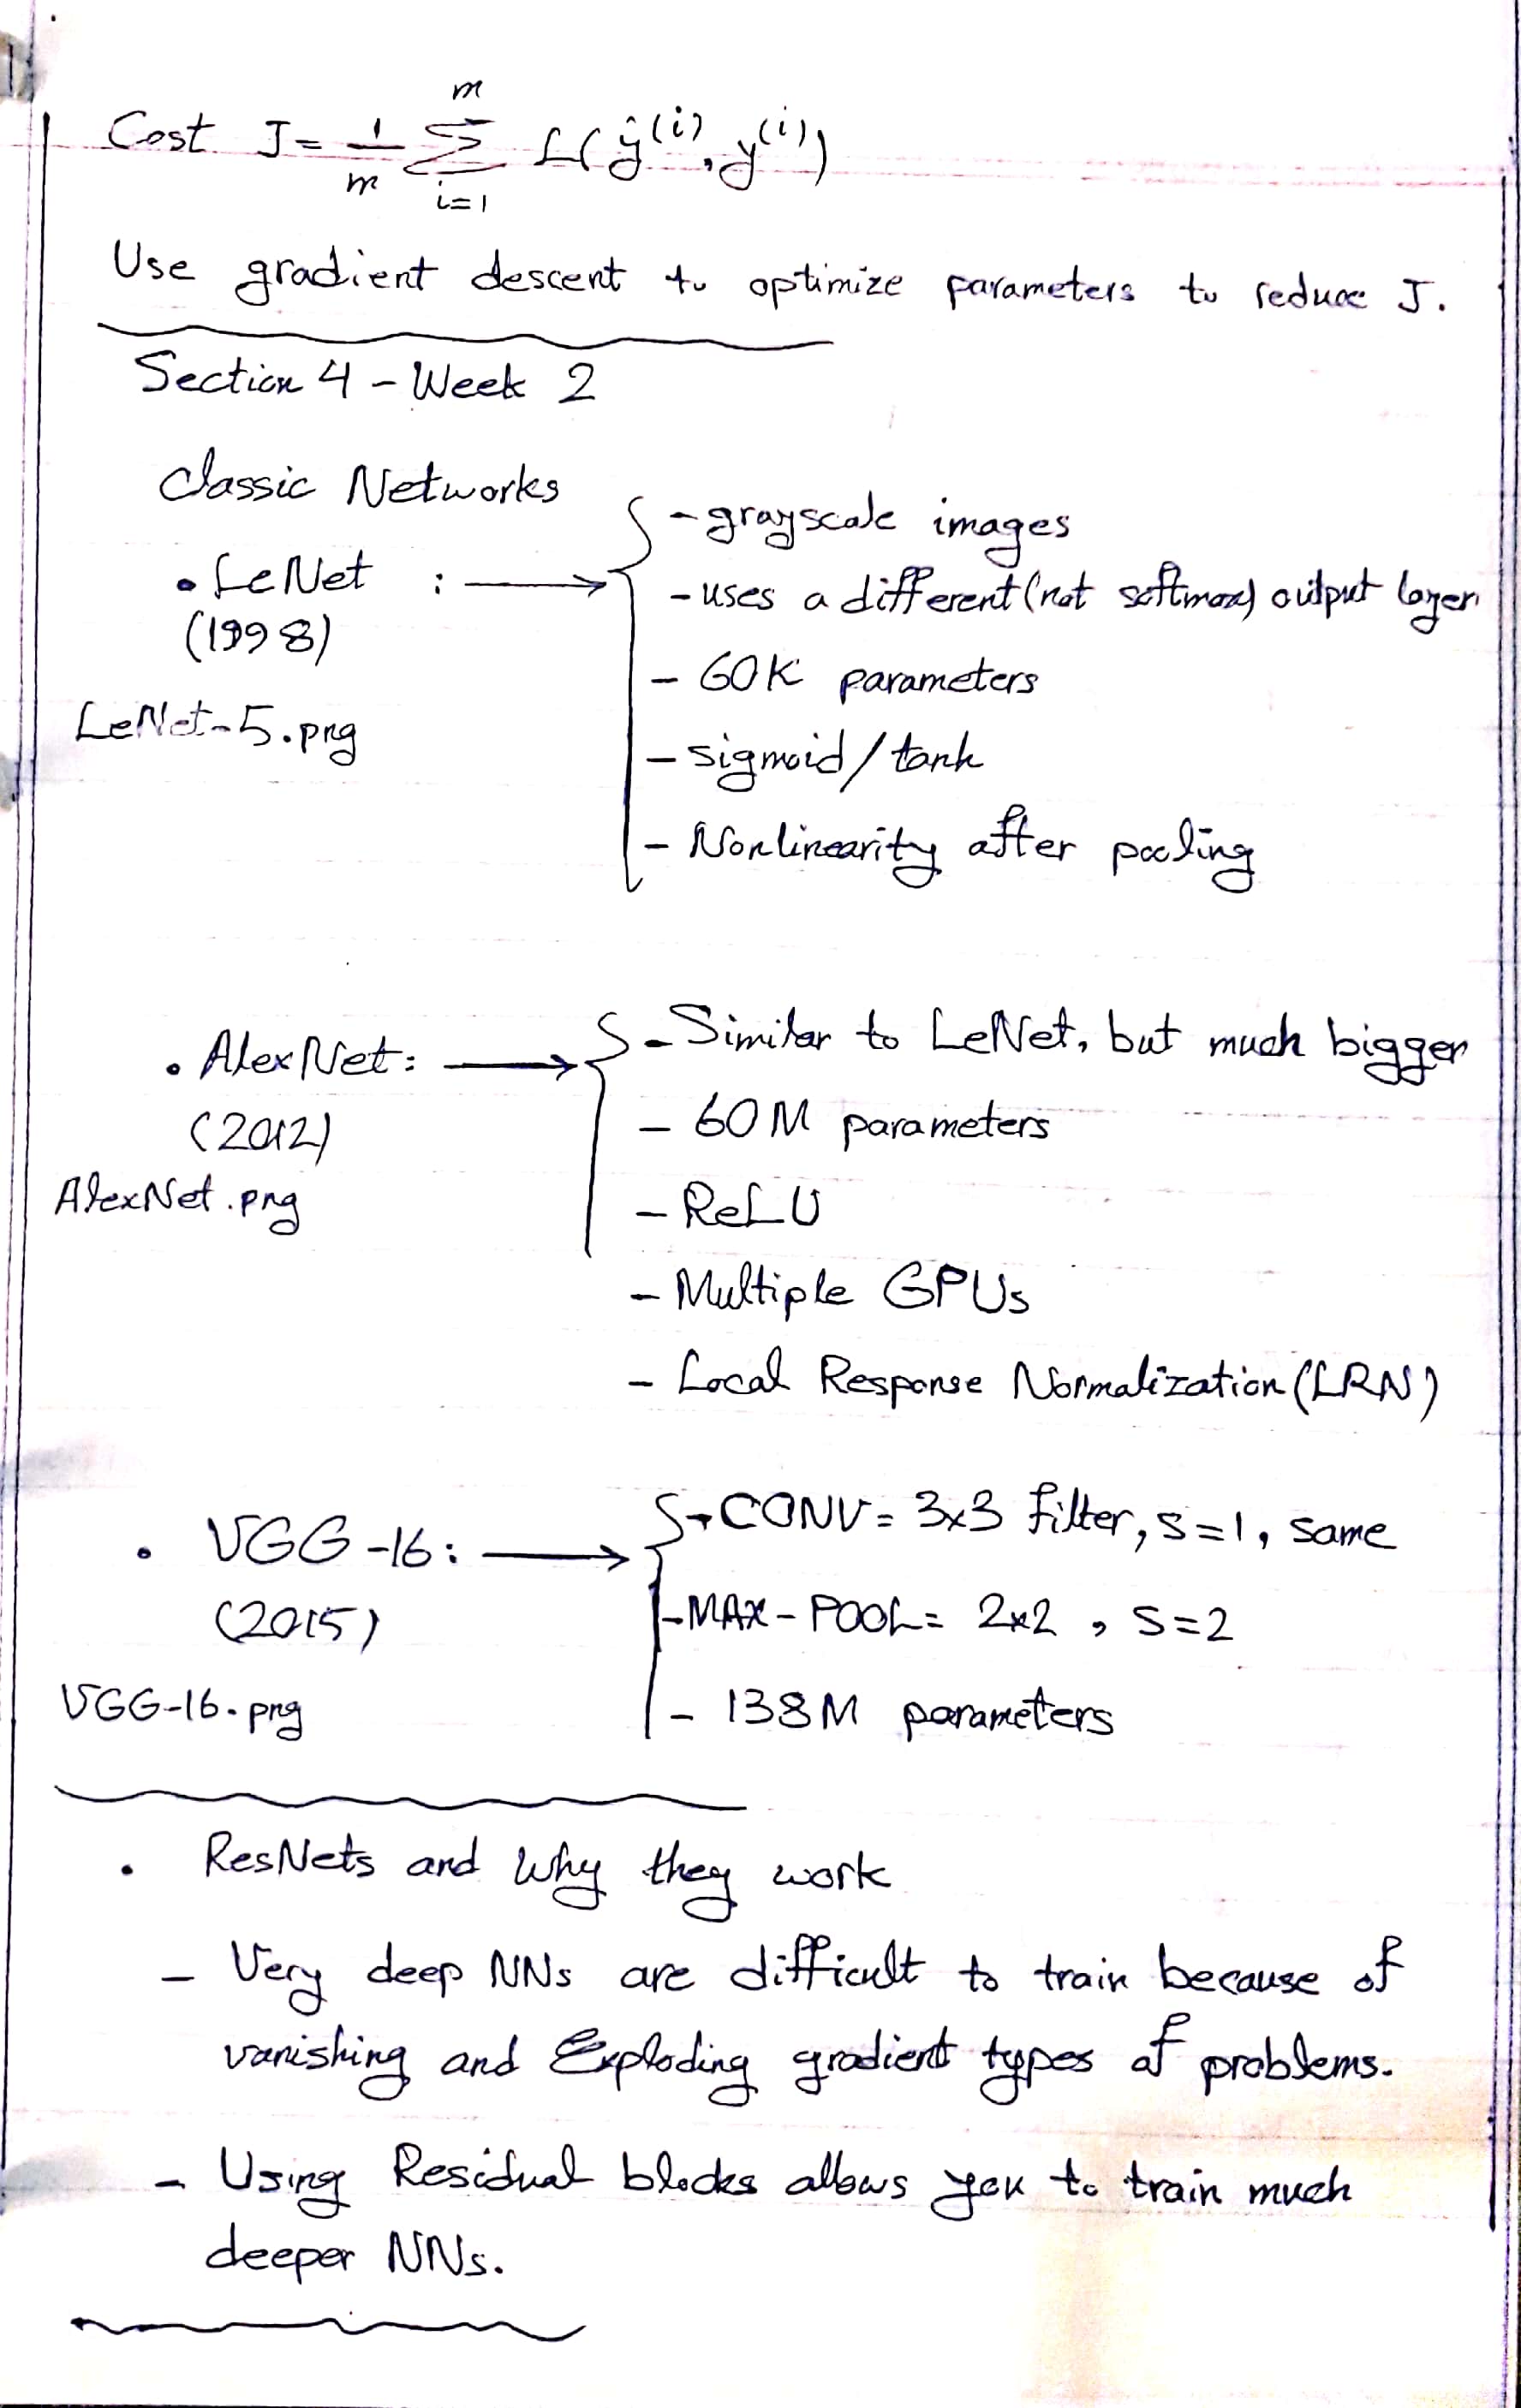 Cost J = 1/m Σ_{i=1}^{m} L(ŷ^(i), y^(i))
Use gradient descent to optimize parameters to reduce J.
Section 4 - Week 2
Classic Networks
• LeNet : → - grayscale images
(1998) - uses a different (not softmax) output layer
- 60K parameters
LeNet-5.png
- sigmoid / tanh
- Nonlinearity after pooling
• AlexNet: → - Similar to LeNet, but much bigger
(2012) - 60M parameters
AlexNet.png - ReLU
- Multiple GPUs
- Local Response Normalization (LRN)
• VGG-16: → - CONV = 3x3 filter, s=1, same
(2015) - MAX-POOL = 2x2 , s=2
VGG-16.png - 138M parameters
• ResNets and why they work
- Very deep NNs are difficult to train because of
vanishing and Exploding gradient types of problems.
- Using Residual blocks allows you to train much
deeper NNs.